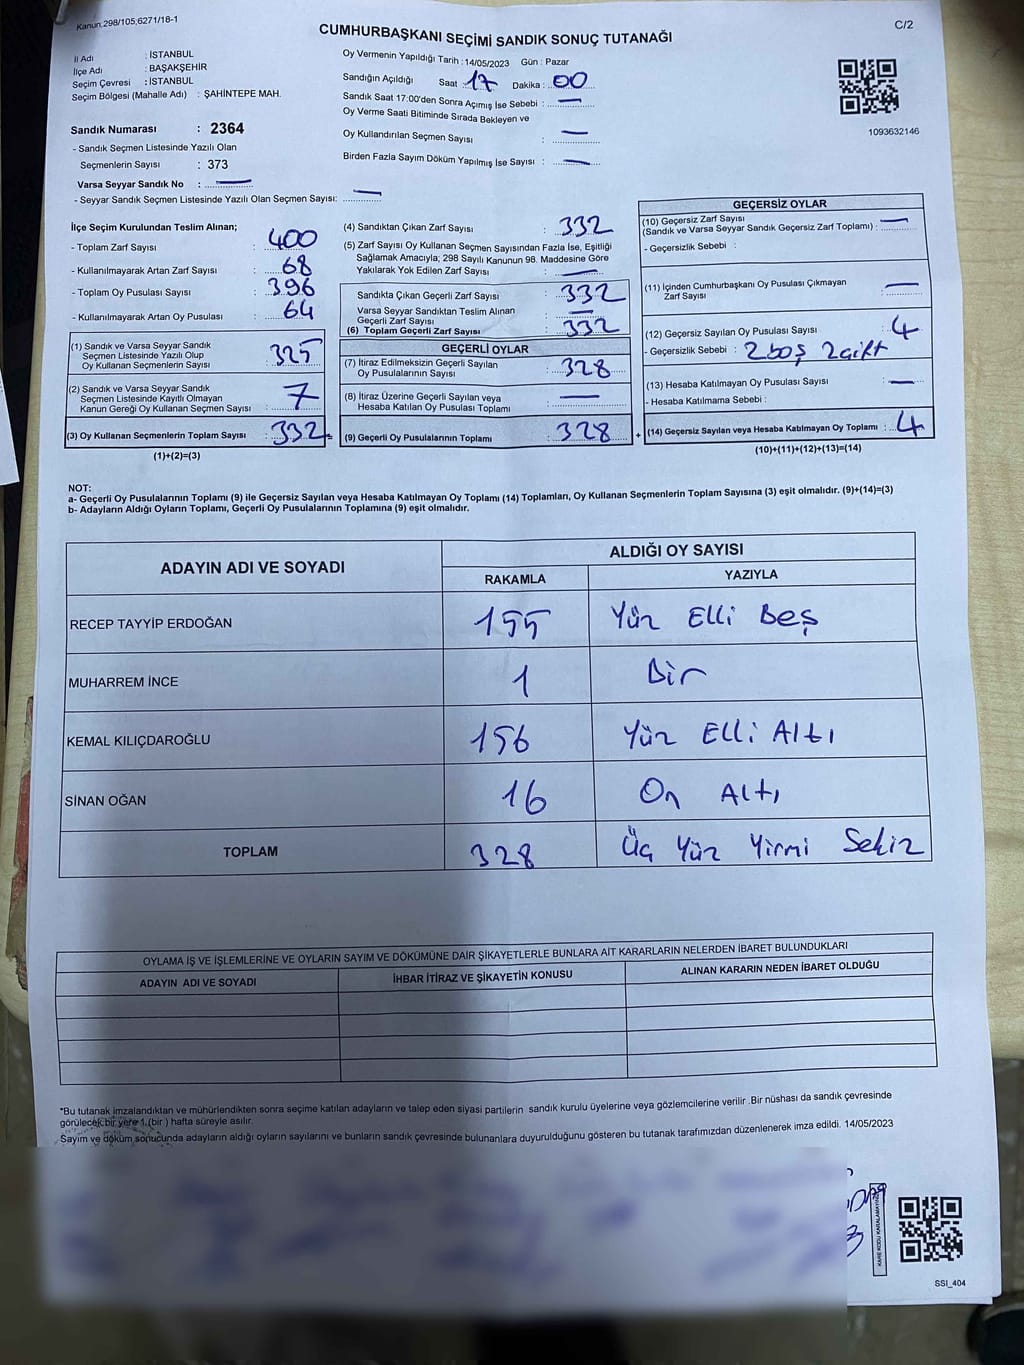 Kanun.298/105;6271/18-1
C/2
CUMHURBAŞKANI SEÇİMİ SANDIK SONUÇ TUTANAĞI
İl Adı : İSTANBUL
İlçe Adı : BAŞAKŞEHİR
Seçim Çevresi : İSTANBUL
Seçim Bölgesi (Mahalle Adı) : ŞAHİNTEPE MAH.
Sandık Numarası : 2364
- Sandık Seçmen Listesinde Yazılı Olan
Seçmenlerin Sayısı : 373
Varsa Seyyar Sandık No : —
- Seyyar Sandık Seçmen Listesinde Yazılı Olan Seçmen Sayısı: —
Oy Vermenin Yapıldığı Tarih : 14/05/2023 Gün : Pazar
Sandığın Açıldığı Saat : 17 Dakika : 00
Sandık Saat 17:00'den Sonra Açımış İse Sebebi : —
Oy Verme Saati Bitiminde Sırada Bekleyen ve
Oy Kullandırılan Seçmen Sayısı : —
Birden Fazla Sayım Döküm Yapılmış İse Sayısı : —
1093632146
İlçe Seçim Kurulundan Teslim Alınan;
- Toplam Zarf Sayısı : 400
- Kullanılmayarak Artan Zarf Sayısı : 68
- Toplam Oy Pusulası Sayısı : 396
- Kullanılmayarak Artan Oy Pusulası : 64
(1) Sandık ve Varsa Seyyar Sandık
Seçmen Listesinde Yazılı Olup
Oy Kullanan Seçmenlerin Sayısı : 325
(2) Sandık ve Varsa Seyyar Sandık
Seçmen Listesinde Kayıtlı Olmayan
Kanun Gereği Oy Kullanan Seçmen Sayısı : 7
(3) Oy Kullanan Seçmenlerin Toplam Sayısı : 332 =
(1)+(2)=(3)
(4) Sandıktan Çıkan Zarf Sayısı : 332
(5) Zarf Sayısı Oy Kullanan Seçmen Sayısından Fazla İse, Eşitliği
Sağlamak Amacıyla; 298 Sayılı Kanunun 98. Maddesine Göre
Yakılarak Yok Edilen Zarf Sayısı : —
Sandıkta Çıkan Geçerli Zarf Sayısı : 332
Varsa Seyyar Sandıktan Teslim Alınan
Geçerli Zarf Sayısı : —
(6) Toplam Geçerli Zarf Sayısı : 332
GEÇERLİ OYLAR
(7) İtiraz Edilmeksizin Geçerli Sayılan
Oy Pusulalarının Sayısı : 328
(8) İtiraz Üzerine Geçerli Sayılan veya
Hesaba Katılan Oy Pusulası Toplamı : —
(9) Geçerli Oy Pusulalarının Toplamı : 328 +
GEÇERSİZ OYLAR
(10) Geçersiz Zarf Sayısı
(Sandık ve Varsa Seyyar Sandık Geçersiz Zarf Toplamı) : —
- Geçersizlik Sebebi :
(11) İçinden Cumhurbaşkanı Oy Pusulası Çıkmayan
Zarf Sayısı : —
(12) Geçersiz Sayılan Oy Pusulası Sayısı : 4
- Geçersizlik Sebebi : 2 boş 2 çift
(13) Hesaba Katılmayan Oy Pusulası Sayısı : —
- Hesaba Katılmama Sebebi :
(14) Geçersiz Sayılan veya Hesaba Katılmayan Oy Toplamı : 4
(10)+(11)+(12)+(13)=(14)
NOT:
a- Geçerli Oy Pusulalarının Toplamı (9) ile Geçersiz Sayılan veya Hesaba Katılmayan Oy Toplamı (14) Toplamları, Oy Kullanan Seçmenlerin Toplam Sayısına (3) eşit olmalıdır. (9)+(14)=(3)
b- Adayların Aldığı Oyların Toplamı, Geçerli Oy Pusulalarının Toplamına (9) eşit olmalıdır.
ADAYIN ADI VE SOYADI ALDIĞI OY SAYISI
RAKAMLA YAZIYLA
RECEP TAYYİP ERDOĞAN 155 Yüz Elli Beş
MUHARREM İNCE 1 Bir
KEMAL KILIÇDAROĞLU 156 Yüz Elli Altı
SİNAN OĞAN 16 On Altı
TOPLAM 328 Üç Yüz Yirmi Sekiz
OYLAMA İŞ VE İŞLEMLERİNE VE OYLARIN SAYIM VE DÖKÜMÜNE DAİR ŞİKAYETLERLE BUNLARA AİT KARARLARIN NELERDEN İBARET BULUNDUKLARI
ADAYIN ADI VE SOYADI İHBAR İTİRAZ VE ŞİKAYETİN KONUSU ALINAN KARARIN NEDEN İBARET OLDUĞU
*Bu tutanak imzalandıktan ve mühürlendikten sonra seçime katılan adayların ve talep eden siyasi partilerin sandık kurulu üyelerine veya gözlemcilerine verilir .Bir nüshası da sandık çevresinde
görülecek bir yere 1.(bir ) hafta süreyle asılır.
Sayım ve döküm sonucunda adayların aldığı oyların sayılarını ve bunların sandık çevresinde bulunanlara duyurulduğunu gösteren bu tutanak tarafımızdan düzenlenerek imza edildi. 14/05/2023
KARE KODU KARALAMAYINIZ
SSI_404